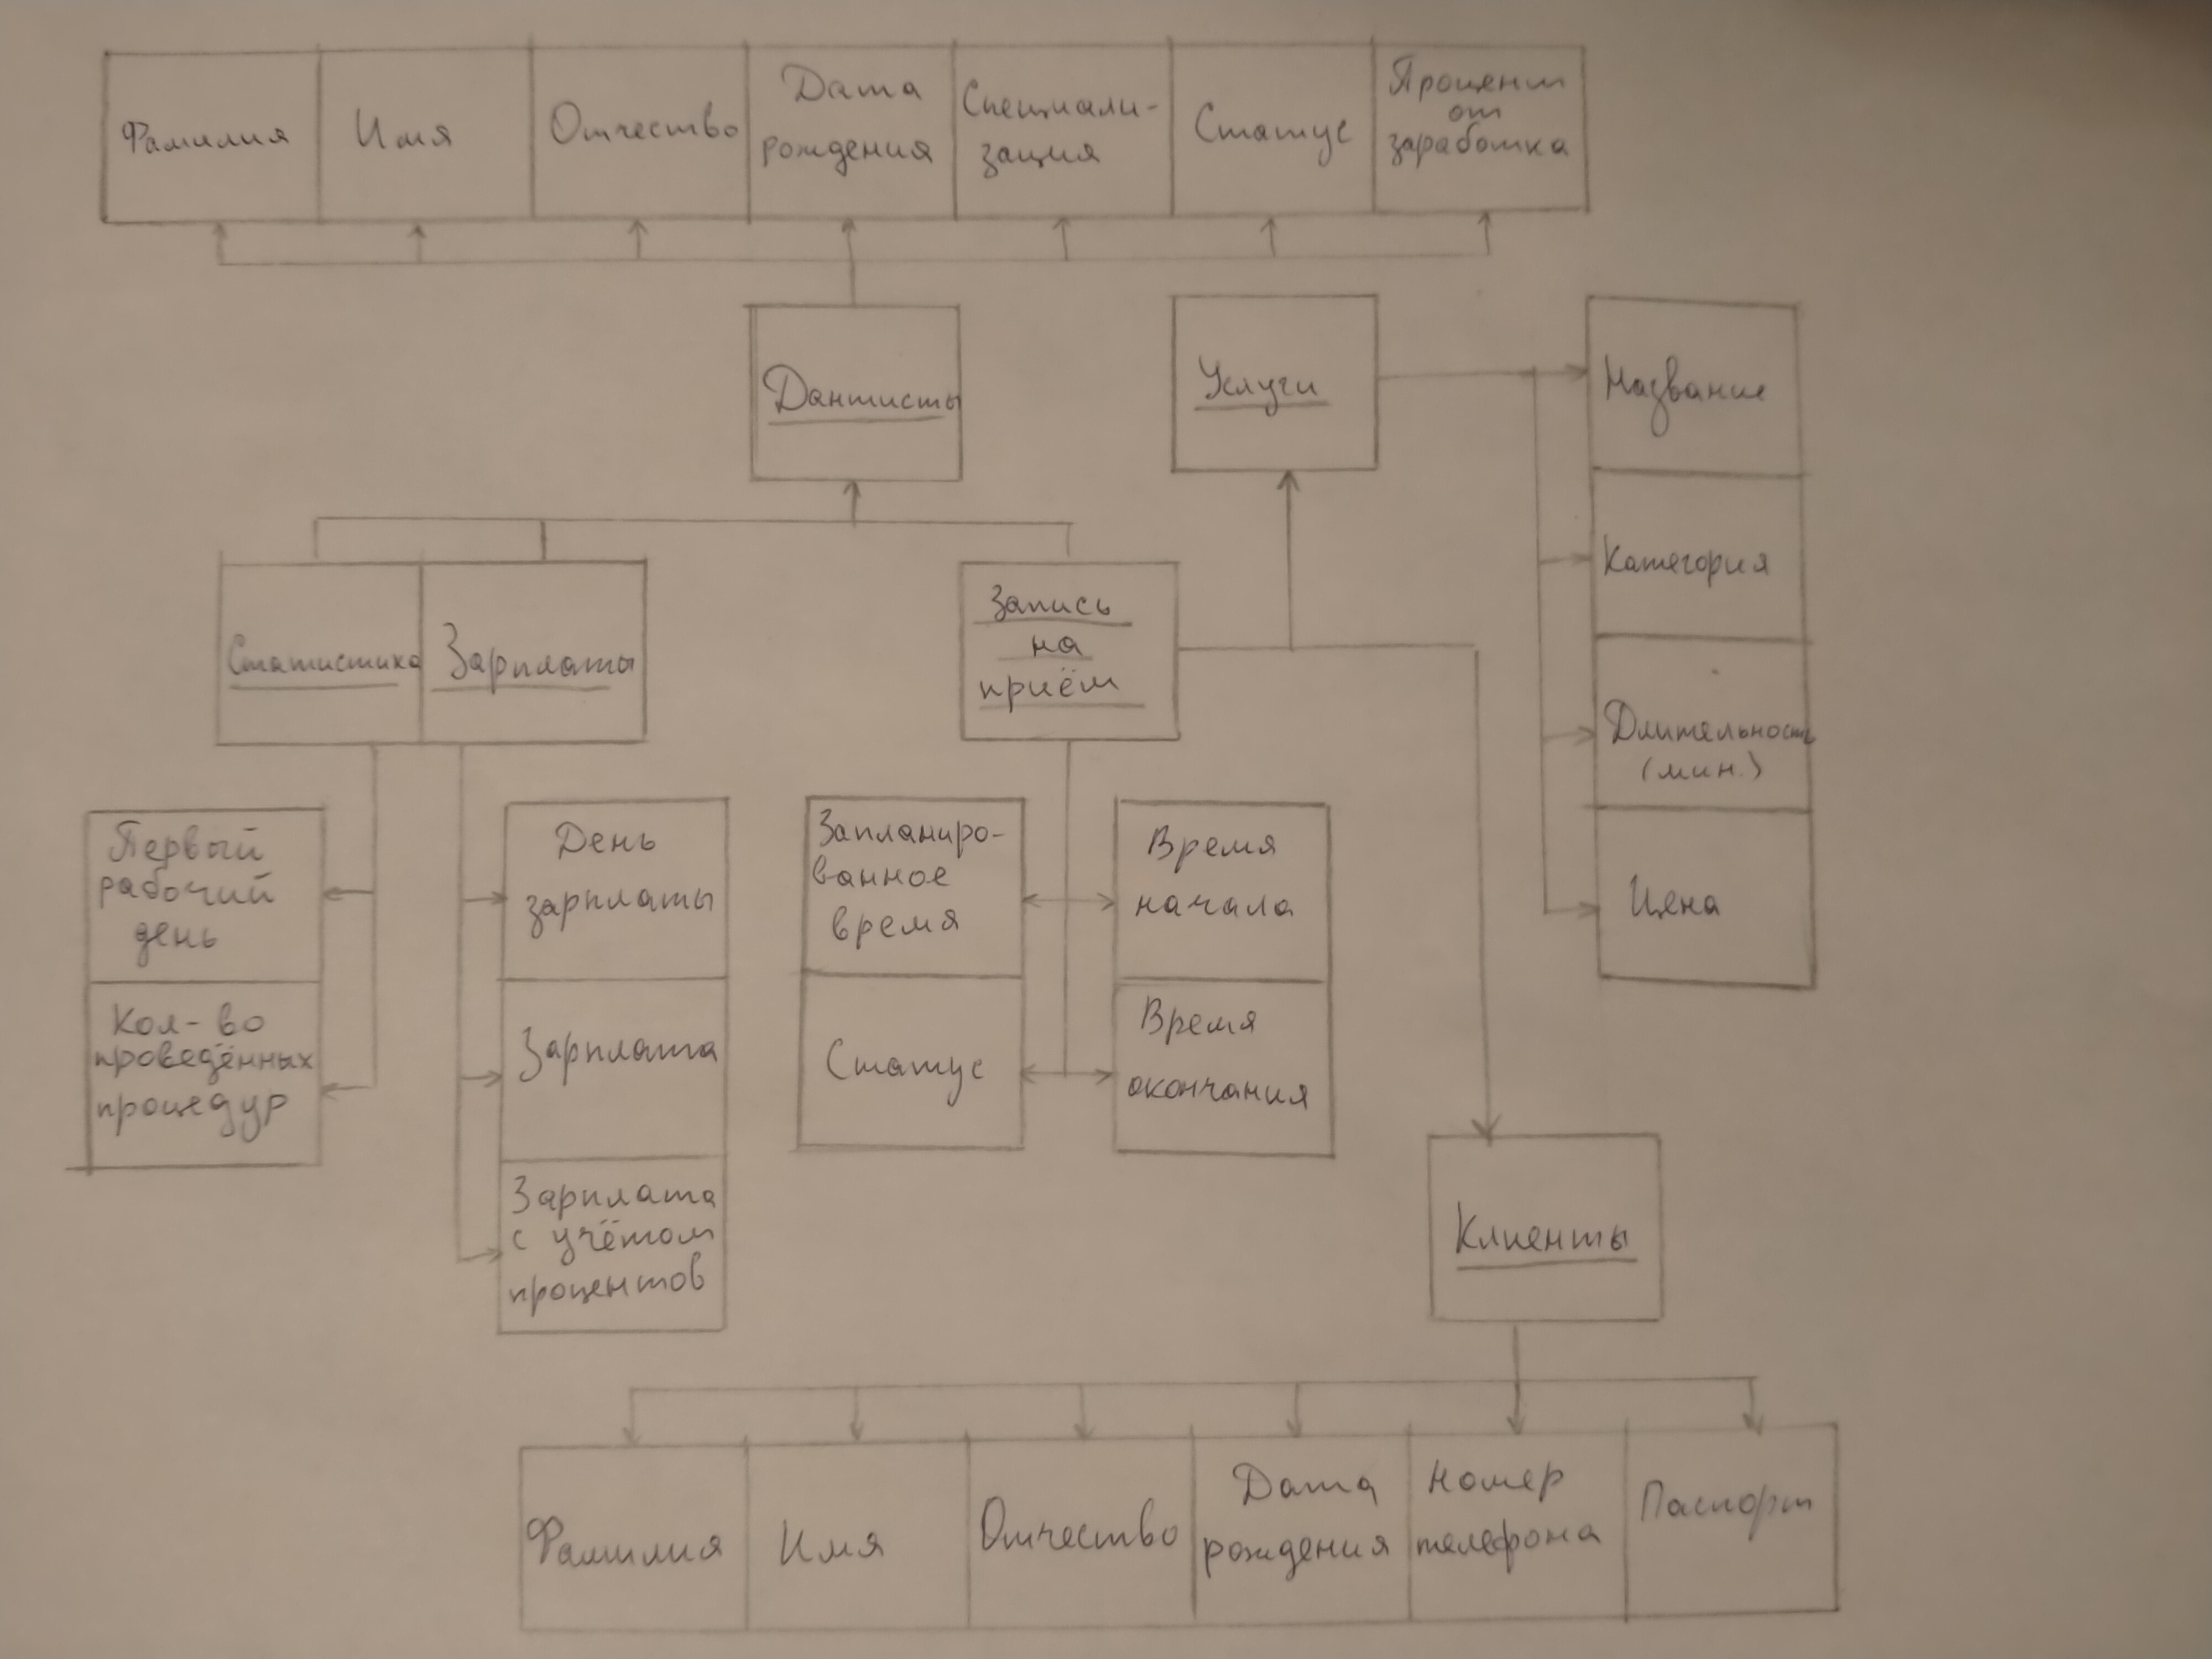 Фамилия
Имя
Отчество
Дата
рождения
Специали-
зация
Статус
Процент
от
заработка
Дантисты
Услуги
Название
Категория
Длительность
(мин.)
Цена
Статистика
Зарплаты
Запись
на
приём
Первый
рабочий
день
Кол-во
проведённых
процедур
День
зарплаты
Зарплата
Зарплата
с учётом
процентов
Запланиро-
ванное
время
Статус
Время
начала
Время
окончания
Клиенты
Фамилия
Имя
Отчество
Дата
рождения
Номер
телефона
Паспорт